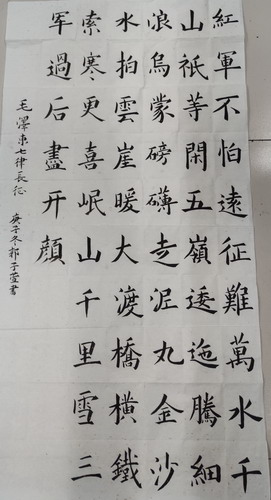 紅軍不怕遠征難萬水千
山祇等閑五嶺逶迤騰細
浪烏蒙磅礴走泥丸金沙
水拍雲崖暖大渡橋橫鐵
索寒更喜岷山千里雪三
军過后盡开顔
毛澤東七律長征 庚子冬郭子萱書